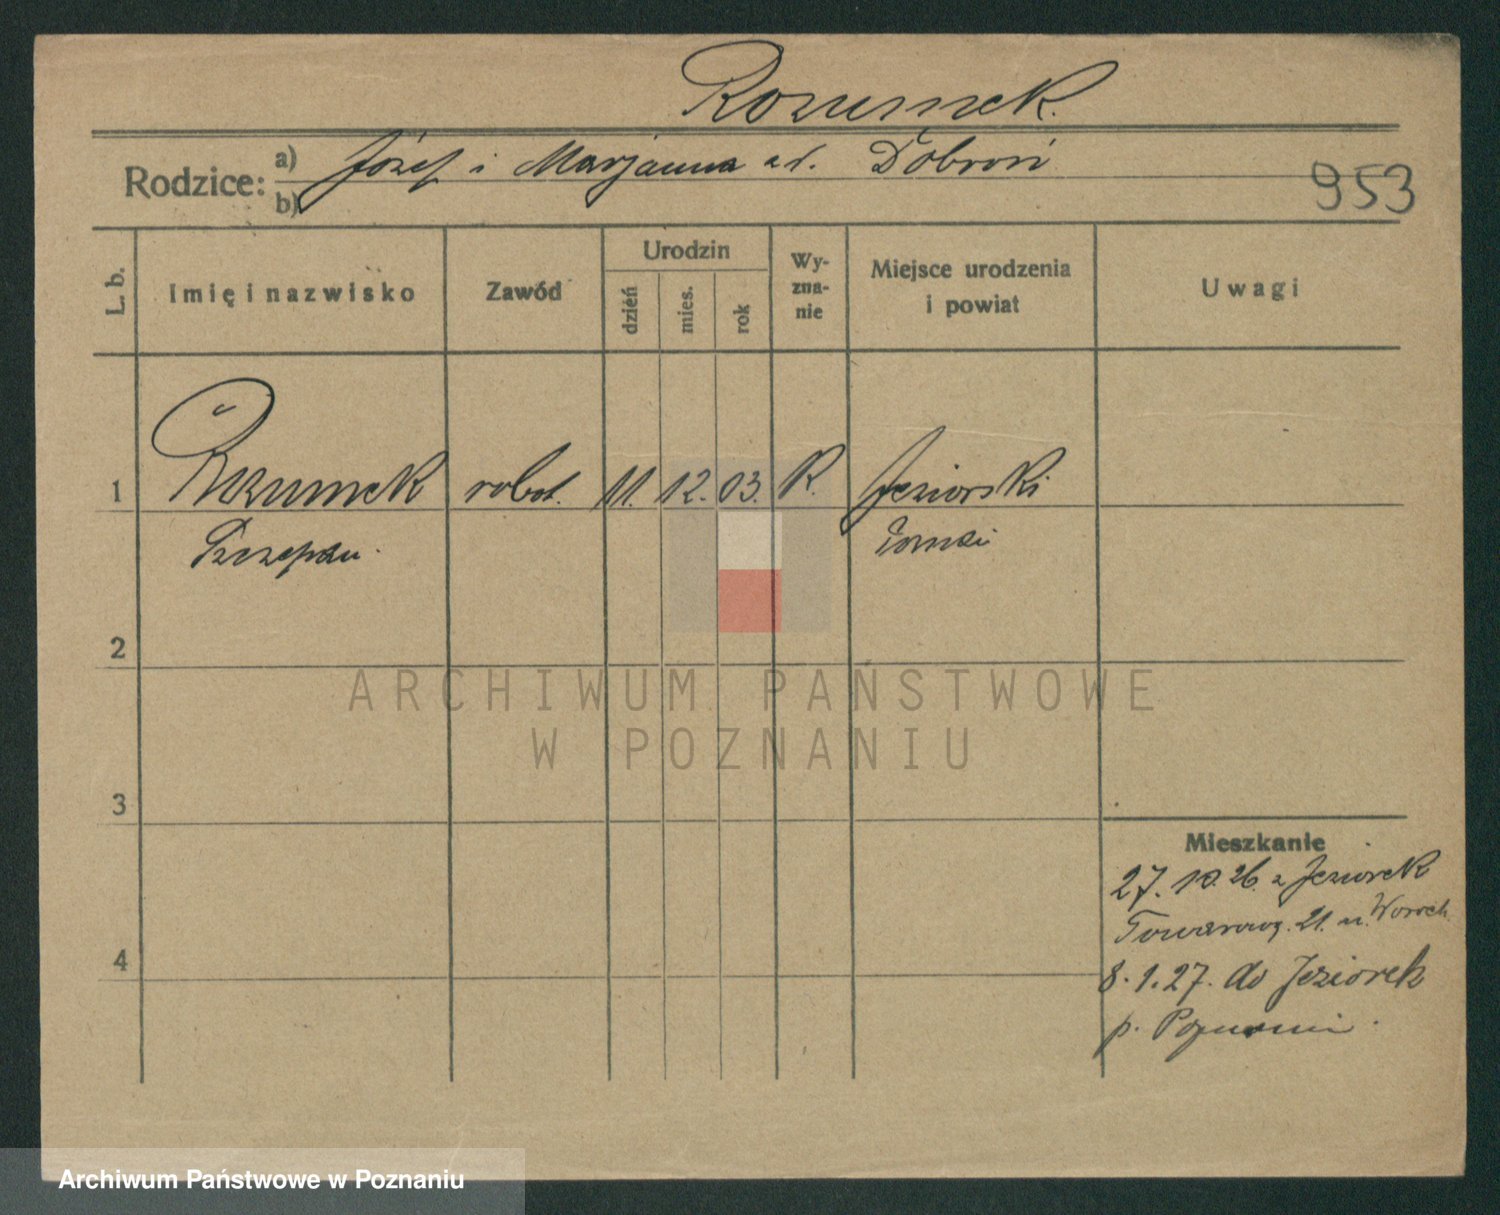 Rozumek.
Rodzice: a) Józef i Marjanna zd. Dobroń
b)
953
L. b. Imię i nazwisko Zawód Urodzin dzień mies. rok Wyznanie Miejsce urodzenia i powiat Uwagi
1 Rozumek robot. 11. 12. 03. R. Jeziorski
Szczepan.
2
ARCHIWUM PAŃSTWOWE
W POZNANIU
3
Mieszkanie
27. 10. 26. z Jeziorek
Towarowa. 21. u.
4
8. 1. 27. do Jeziorek
p.
Archiwum Państwowe w Poznaniu